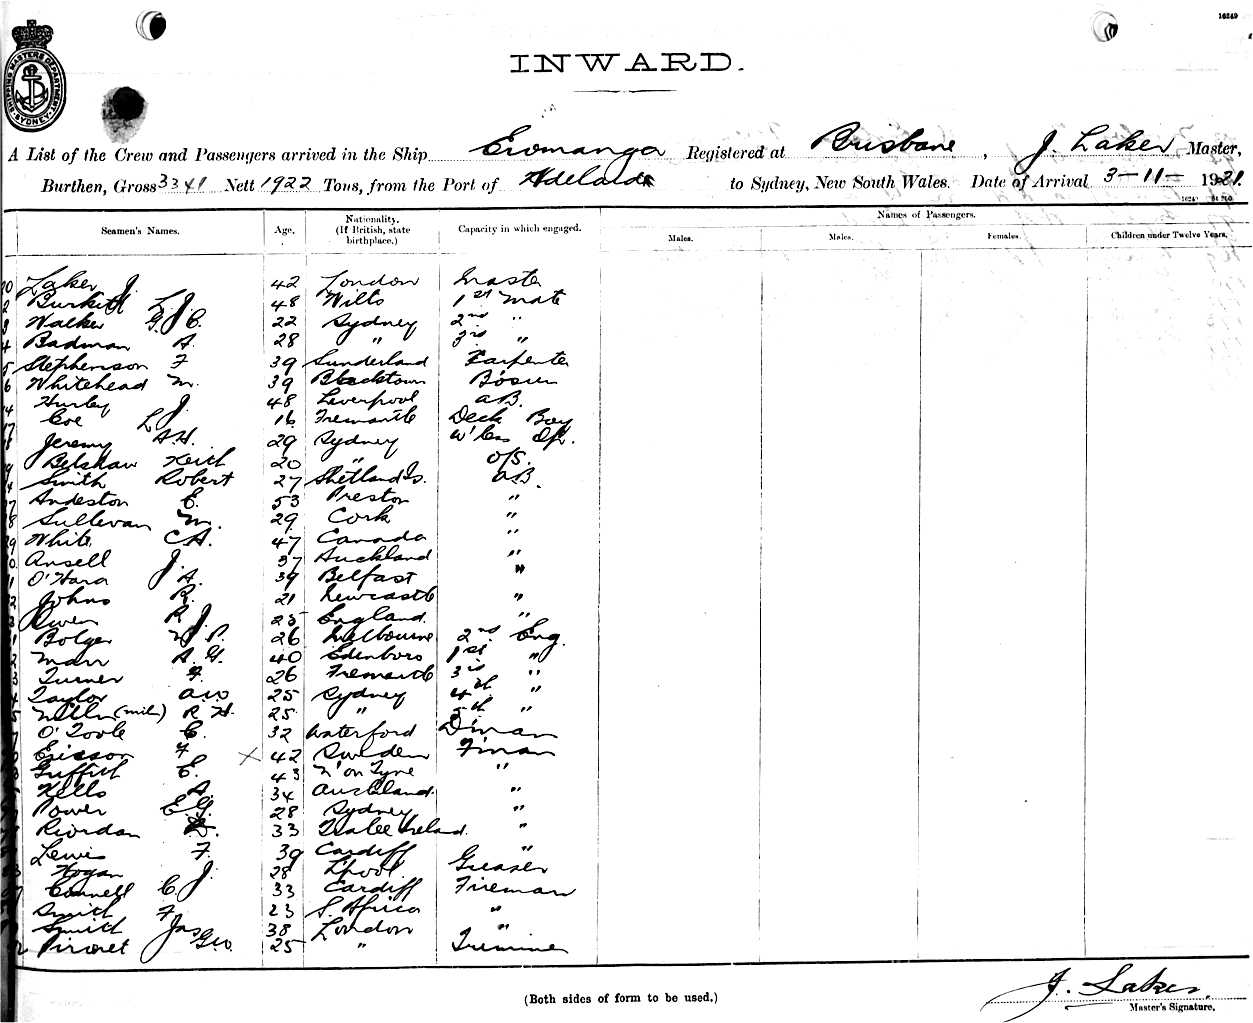 16249
SHIPPING MASTERS DEPARTMENT SYDNEY
INWARD.
A List of the Crew and Passengers arrived in the Ship Eromanga Registered at Brisbane, J. Laker Master,
Burthen, Gross 3341 Nett 1922 Tons, from the Port of Adelaide to Sydney, New South Wales. Date of Arrival 3-11-1921.
Seamen's Names. Age. Nationality. (If British, state birthplace.) Capacity in which engaged. Names of Passengers.
Males. Males. Females. Children under Twelve Years.
Laker J. 42 London Master
Burkett L. J. 48 Wilts 1st Mate
Walker G. J. C. 22 Sydney 2nd "
Badman A. 28 " 3rd "
5 Stephenson F 39 Sunderland Carpenter
6 Whitehead M. 39 Blacktown Bosun
Hurley J. 48 Liverpool AB.
Coe L J 16 Fremantle Deck Boy
Jeremy A.H. 29 Sydney W'less Op.
Belshaw Keith 20 " O/S.
Smith Robert 27 Shetland Is. AB.
Andeston E. 53 Preston "
Sullevan M. 29 Cork "
White C A. 47 Canada "
Ansell J. 37 Auckland "
O'Hara J A. 39 Belfast "
Johns R. 21 Newcastle "
Owen R J. 25 England. "
Bolger W P. 26 Melbourne 2nd Eng.
Marr A. G. 40 Edenboro 1st "
Turner F. 26 Fremantle 3rd "
Taylor AW 25 Sydney 4th "
(mil) R H. 25 " 5th "
O'Toole C. 32 Waterford D'man
Ericson F X 42 Sweden F'man
Griffith E. 43 N' on Tyne "
Kells A. 34 Auckland. "
Power E G. 28 Sydney "
Riordan D. 33 Tralee Ireland. "
Lewis F. 39 Cardiff "
Hogan J. 28 L'pool. Greaser
Connell C J. 33 Cardiff Fireman
Smith F. 23 S. Africa "
Smith Jas 38 London "
Geo. 25 " Trimmer
(Both sides of form to be used.)
J. Laker.
Master's Signature.